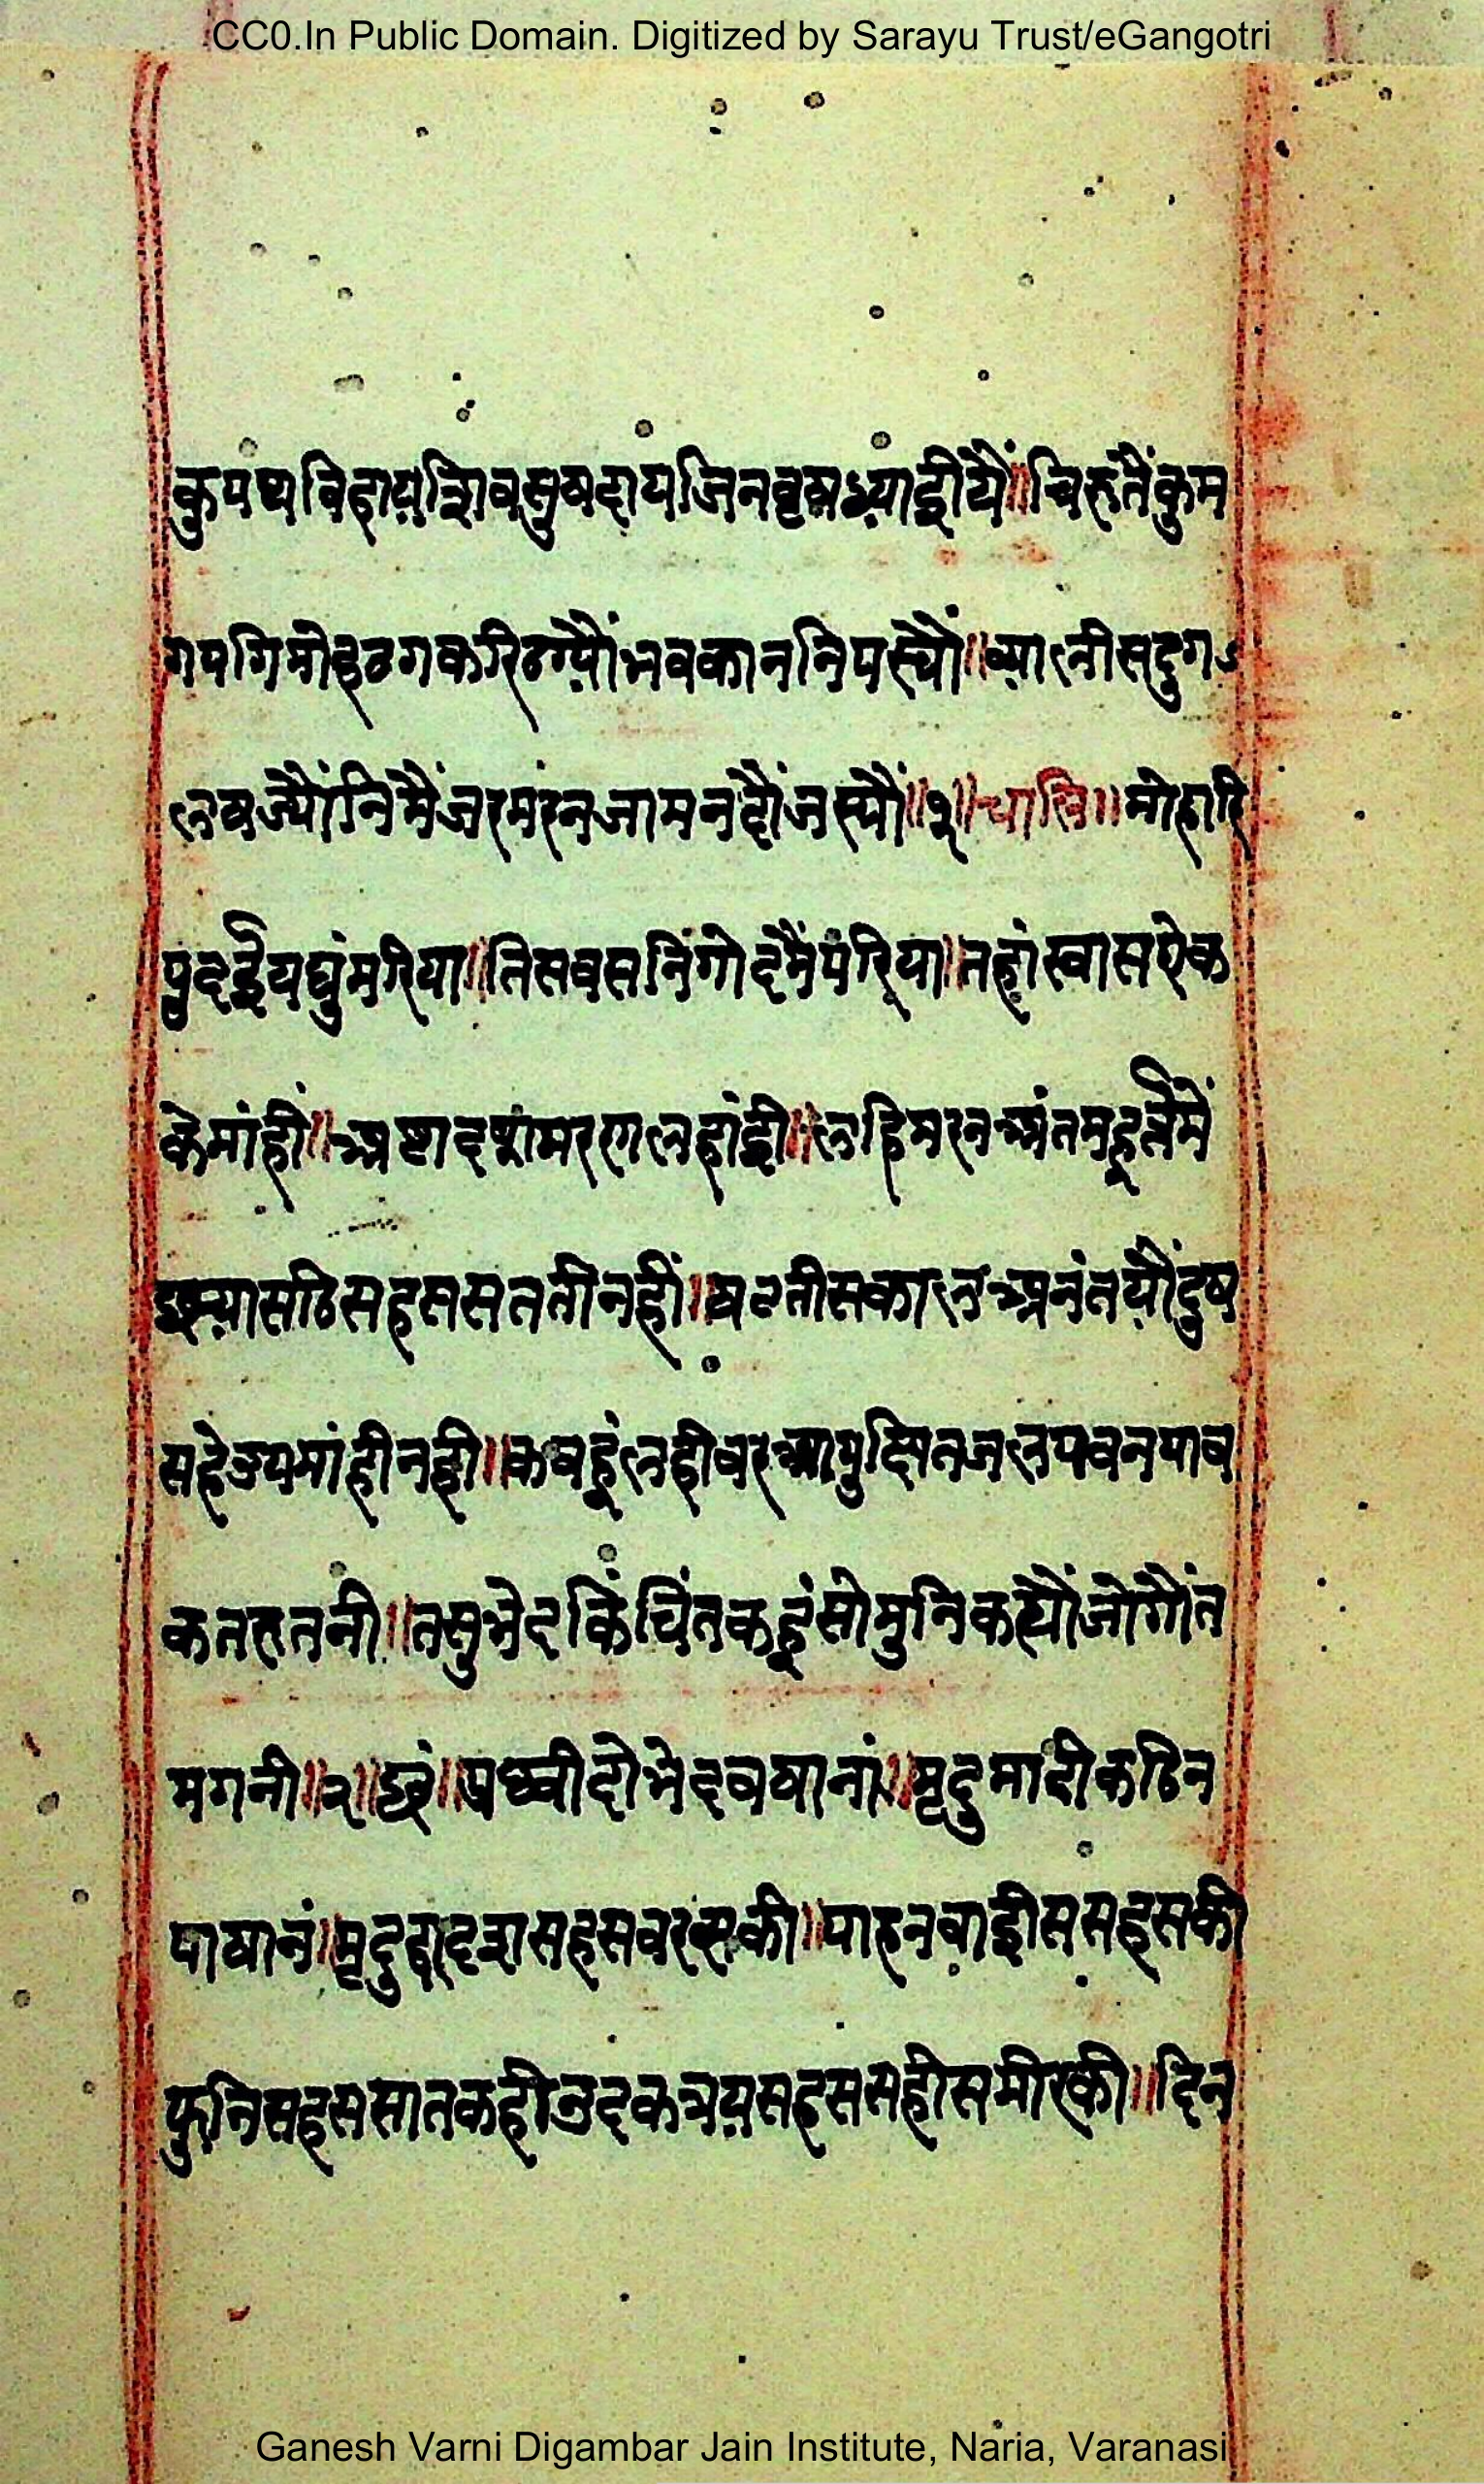 CC0.In Public Domain. Digitized by Sarayu Trust/eGangotri
कुपथविहायशिवसुषदायजिनवृषध्याईयै॥चिरुतैंकुम
गपगिमोहठगकरिठग्यौंभवकाननिपस्यौं॥व्यालीसदुग
लषज्यौंनिमैंजरमरनजामनदौंजस्यौं॥१॥चालि॥मोहारि
पुदईयघुंमरिया॥तिसबसनिगोदमैंपरिया॥तहांस्वासऐक
केमांहीं॥अष्टादषमरणलहांही॥लहिमरनअंतमहूर्त्तमें
छ्यासठिसहससततीनहीं॥षटतीसकालअनंतयौंदुष
सहेउपमांहीनही॥कबहूंलहीबरआयुछितजलपवनपाव
कतरुतनी॥तसुभेदकिंचिंतकहूंसोमुनिकह्यौंजोगौंत
मगनी॥२॥छंद॥प्रथ्वीदोभेदबषानां॥मृदुमाटीकठिन
पाषानं॥मृदुद्वादशसहसबरसकी॥पाहनबाईससहसकी
फुनिसहससातकहीउदकत्रयसहससहीसमीरकी॥दिन
Ganesh Varni Digambar Jain Institute, Naria, Varanasi